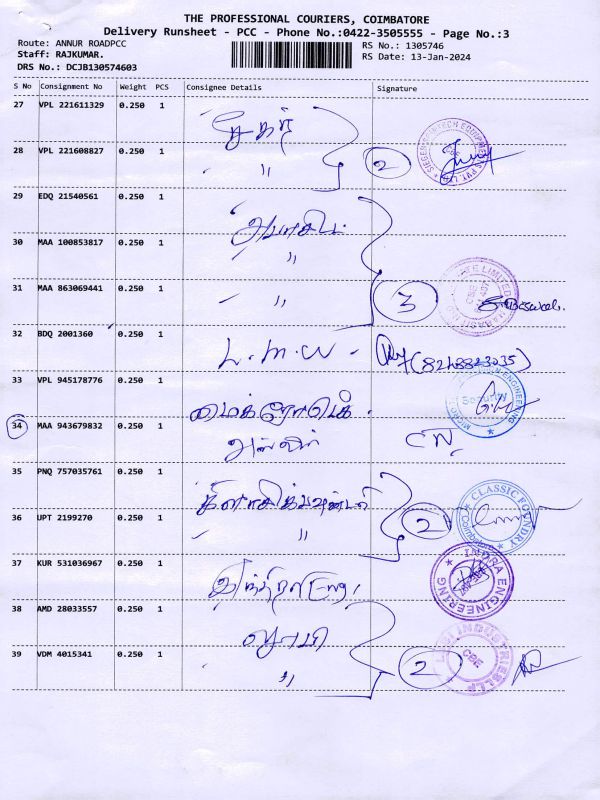 THE PROFESSIONAL COURIERS, COIMBATORE
Delivery Runsheet - PCC - Phone No.:0422-3505555 - Page No.:3
Route: ANNUR ROADPCC
RS No.: 1305746
Staff: RAJKUMAR.
RS Date: 13-Jan-2024
DRS No.: DCJB130574603
S No Consignment No Weight PCS Consignee Details Signature
27 VPL 221611329 0.250 1 சேகர்
28 VPL 221608827 0.250 1 " 2
29 EDQ 21540561 0.250 1
30 MAA 100853817 0.250 1 "
31 MAA 863069441 0.250 1 " 3
32 BDQ 2001360 0.250 1 L.M.W - (8248823035)
33 VPL 945178776 0.250 1
34 MAA 943679832 0.250 1
35 PNQ 757035761 0.250 1
CLASSIC FOUNDRY
Coimbatore
36 UPT 2199270 0.250 1 " 2
37 KUR 531036967 0.250 1
INDRA ENGINEERING
38 AMD 28033557 0.250 1
39 VDM 4015341 0.250 1 " 2
CBE